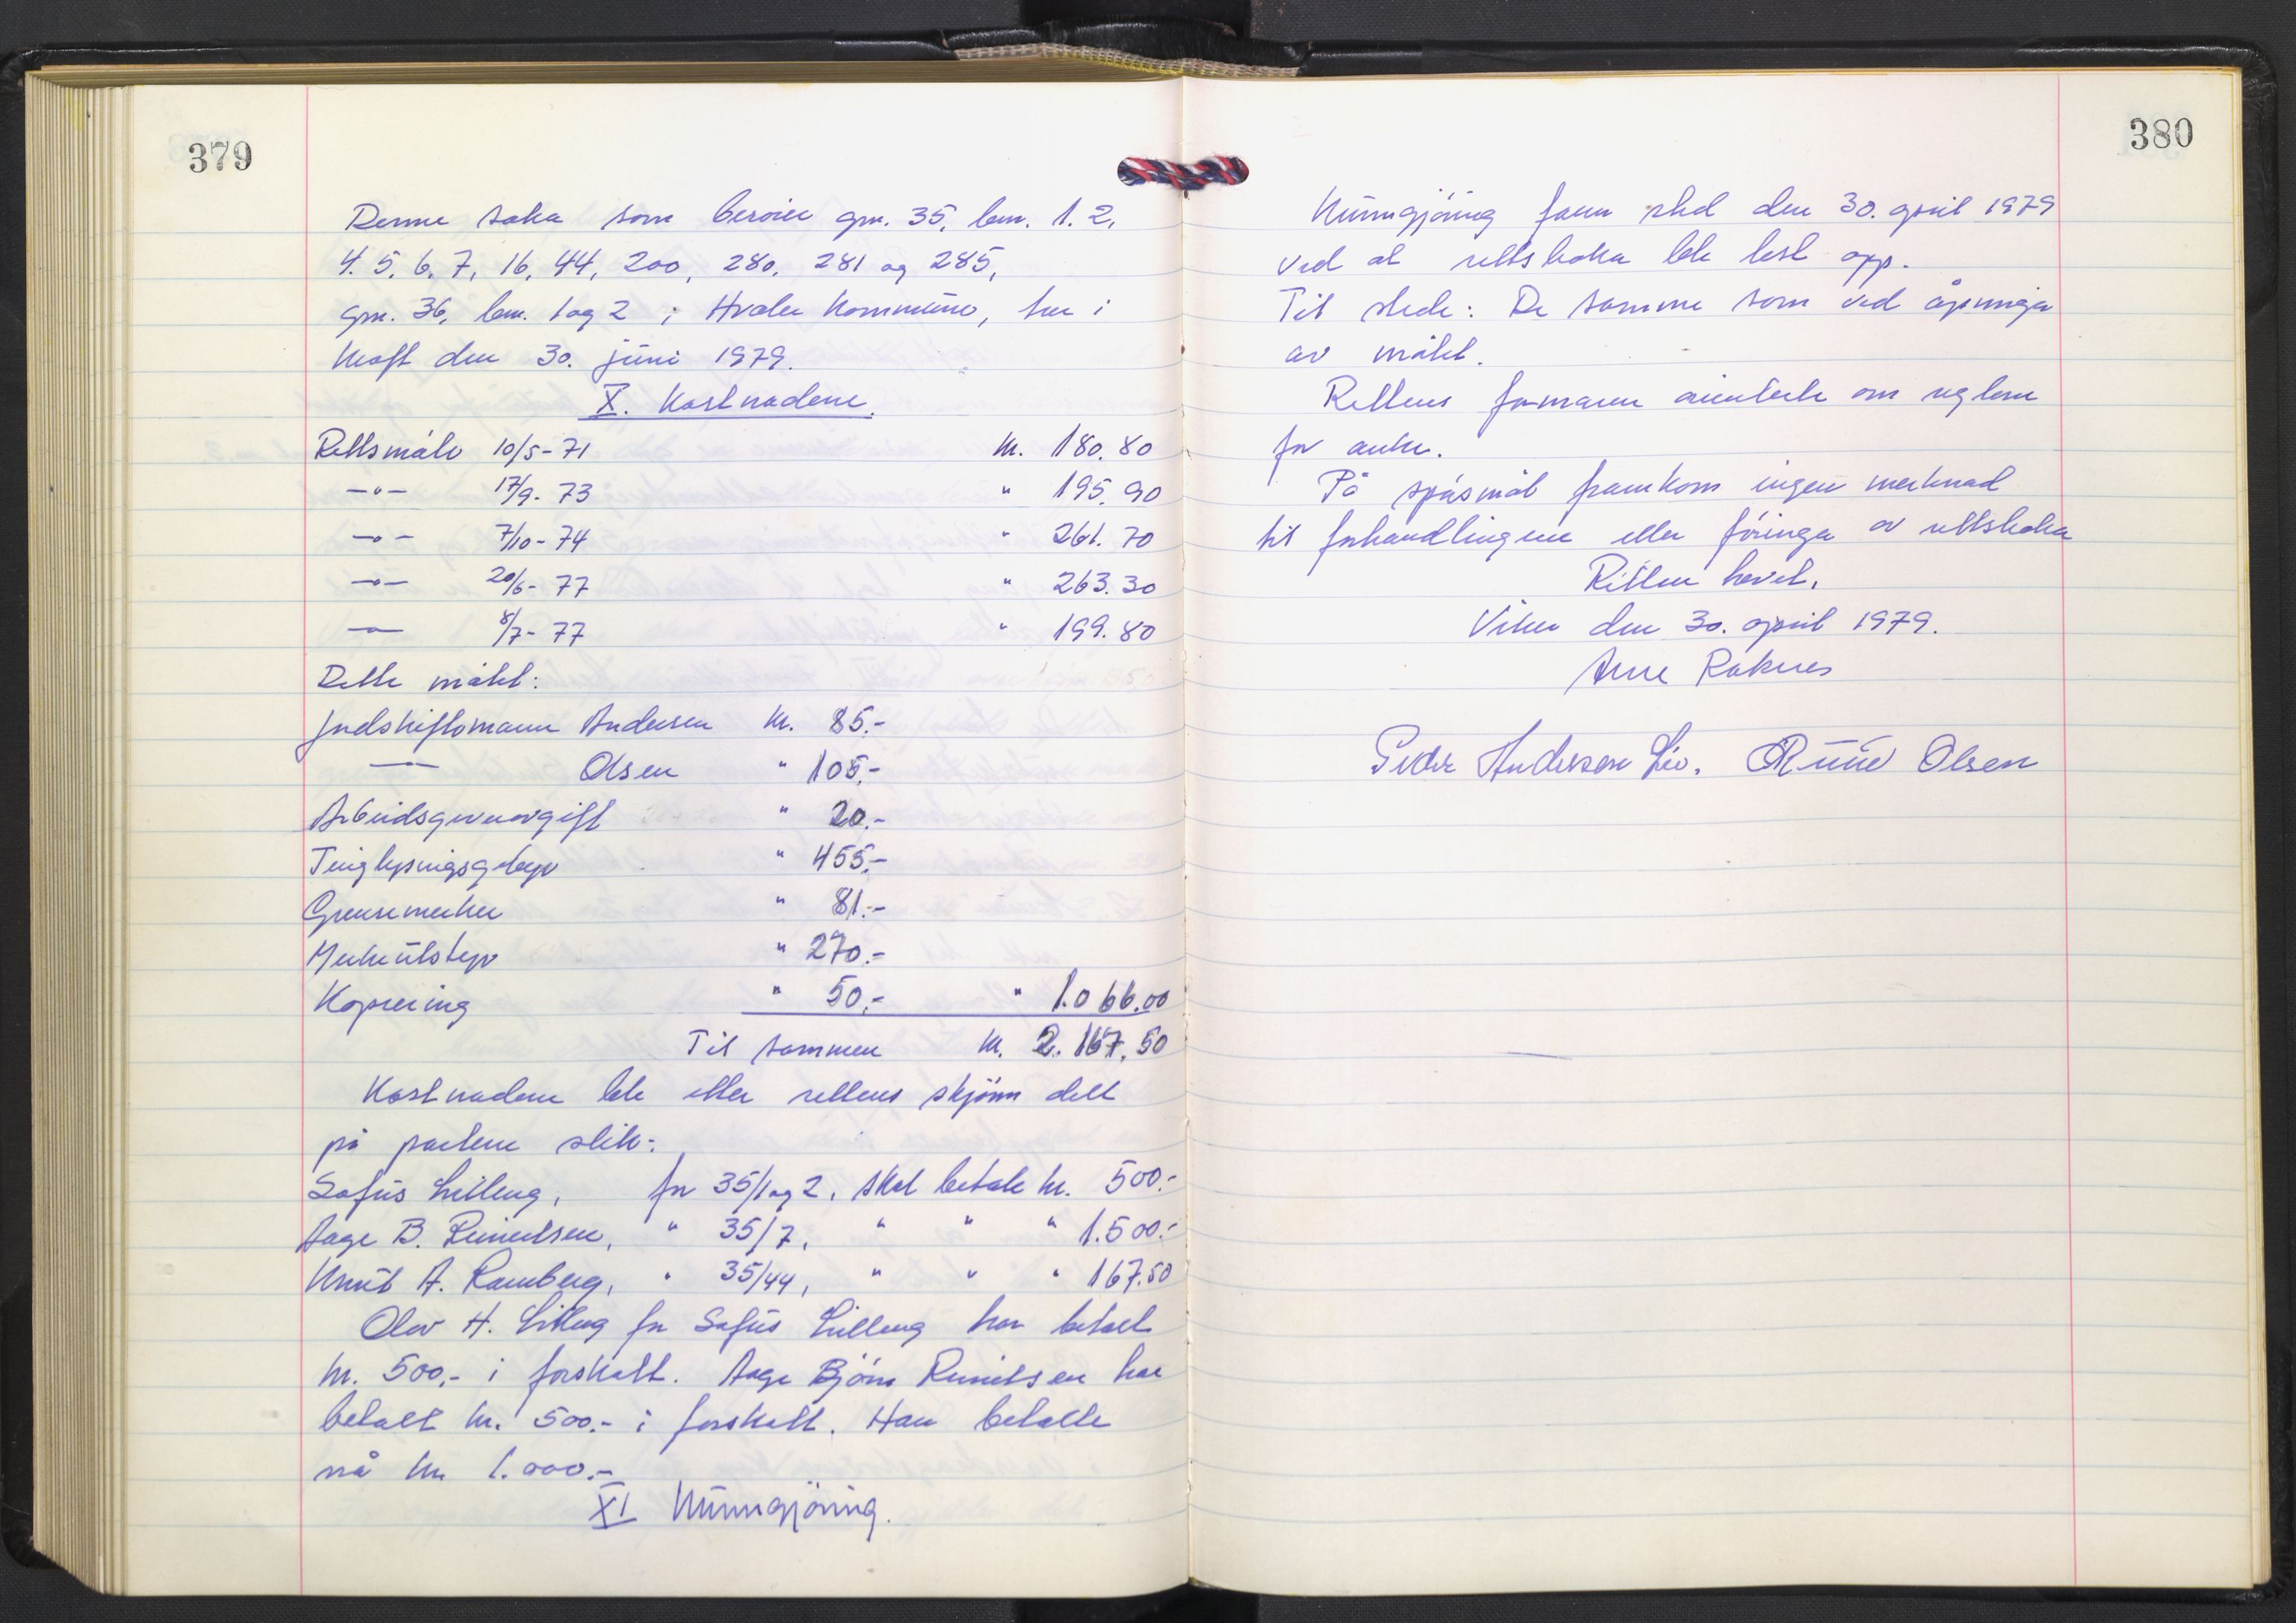 379
Denne saka som berører gnr. 35, bnr. 1. 2,
4. 5, 6, 7, 16, 44, 200, 280, 281 og 285,
gnr. 36, bnr. 1 og 2 i Hvaler kommune, trer i
kraft den 30. juni 1979.
X. Kostnadene.
Rettsmøte 10/5-71 kr. 180.80
-"- 17/9-73 " 195.90
-"- 7/10-74 " 261.70
-"- 20/6-77 " 263.30
-"- 8/7-77 " 199.80
Dette møtet:
Jordskiftemann Andersen kr. 85.-
-"- Olsen " 105.-
Arbeidsgiveravgift " 20.-
Tinglysingsgebyr " 455.-
Grensemerker " 81.-
Merkeutstyr " 270.-
Kopiering " 50.- " 1.066.00
Til sammen kr. 2.167,50
Kostnadene ble etter rettens skjønn delt
på partene slik:
Sofus Lilleng, for 35/1 og 2, skal betale kr. 500.-
Aage B. Reinertsen, " 35/7, " " " 1.500.-
Knut A. Ramberg, " 35/44, " " " 167.50
Olav H. Lilleng for Sofus Lilleng har betalt
kr. 500,- i forskott. Aage Bjørn Reinertsen har
betalt kr. 500.- i forskott. Han betalte
nå kr. 1.000.-
XI Kunngjøring.
380
Kunngjøring fann sted den 30. april 1979
ved at rettsboka ble lest opp.
Til stede: De samme som ved åpninga
av møtet.
Rettens formann orienterte om reglene
for anke.
På spørsmål framkom ingen merknad
til forhandlingene eller føringa av rettsboka
Retten hevet.
Viker den 30. april 1979.
Arne Raknes
Peder Andersen Liv. Ruud Olsen